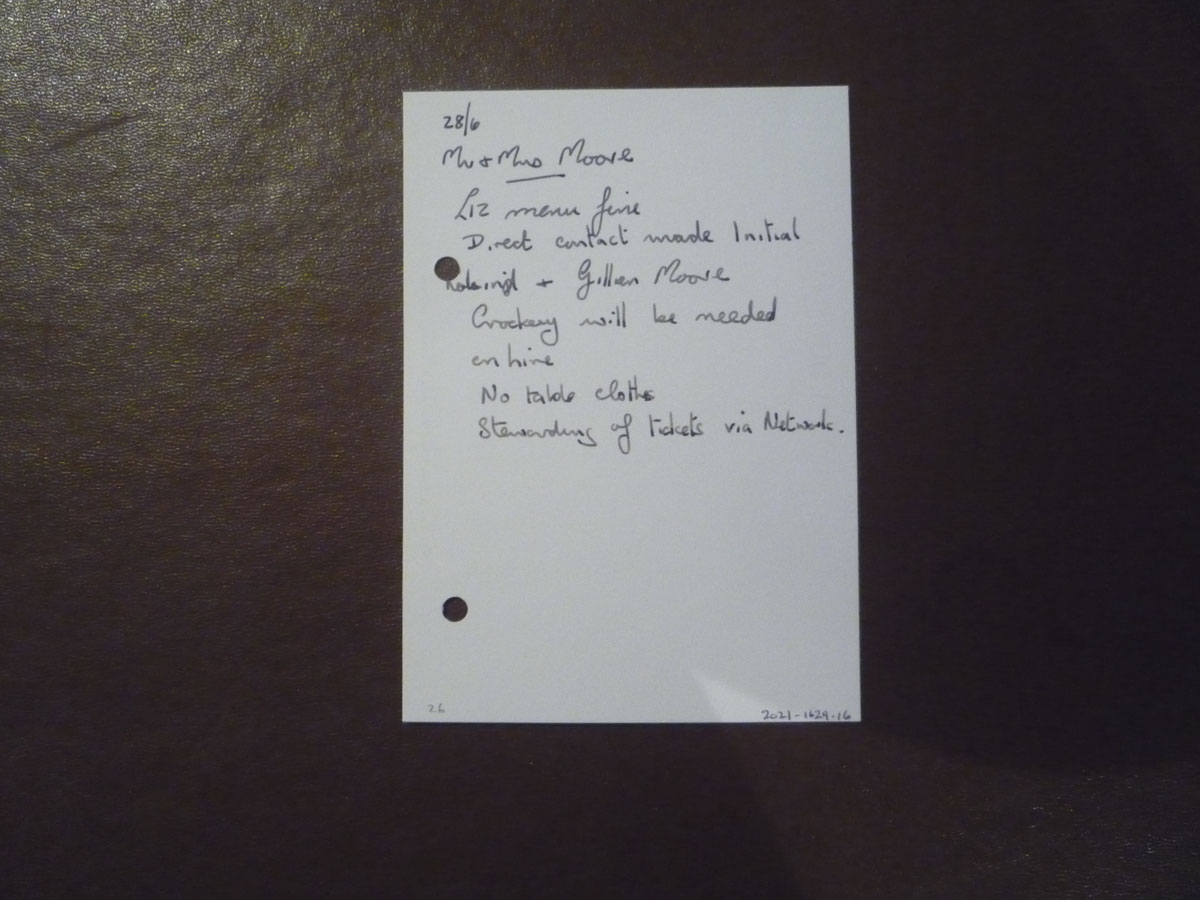 28/6
Mr + Mrs Moore
Liz menu fine
Direct contact made Initial
+ Gillian Moore
Crockery will be needed
on hire
No table cloths
Stewarding of tickets via Network.
26
2021-1629-16